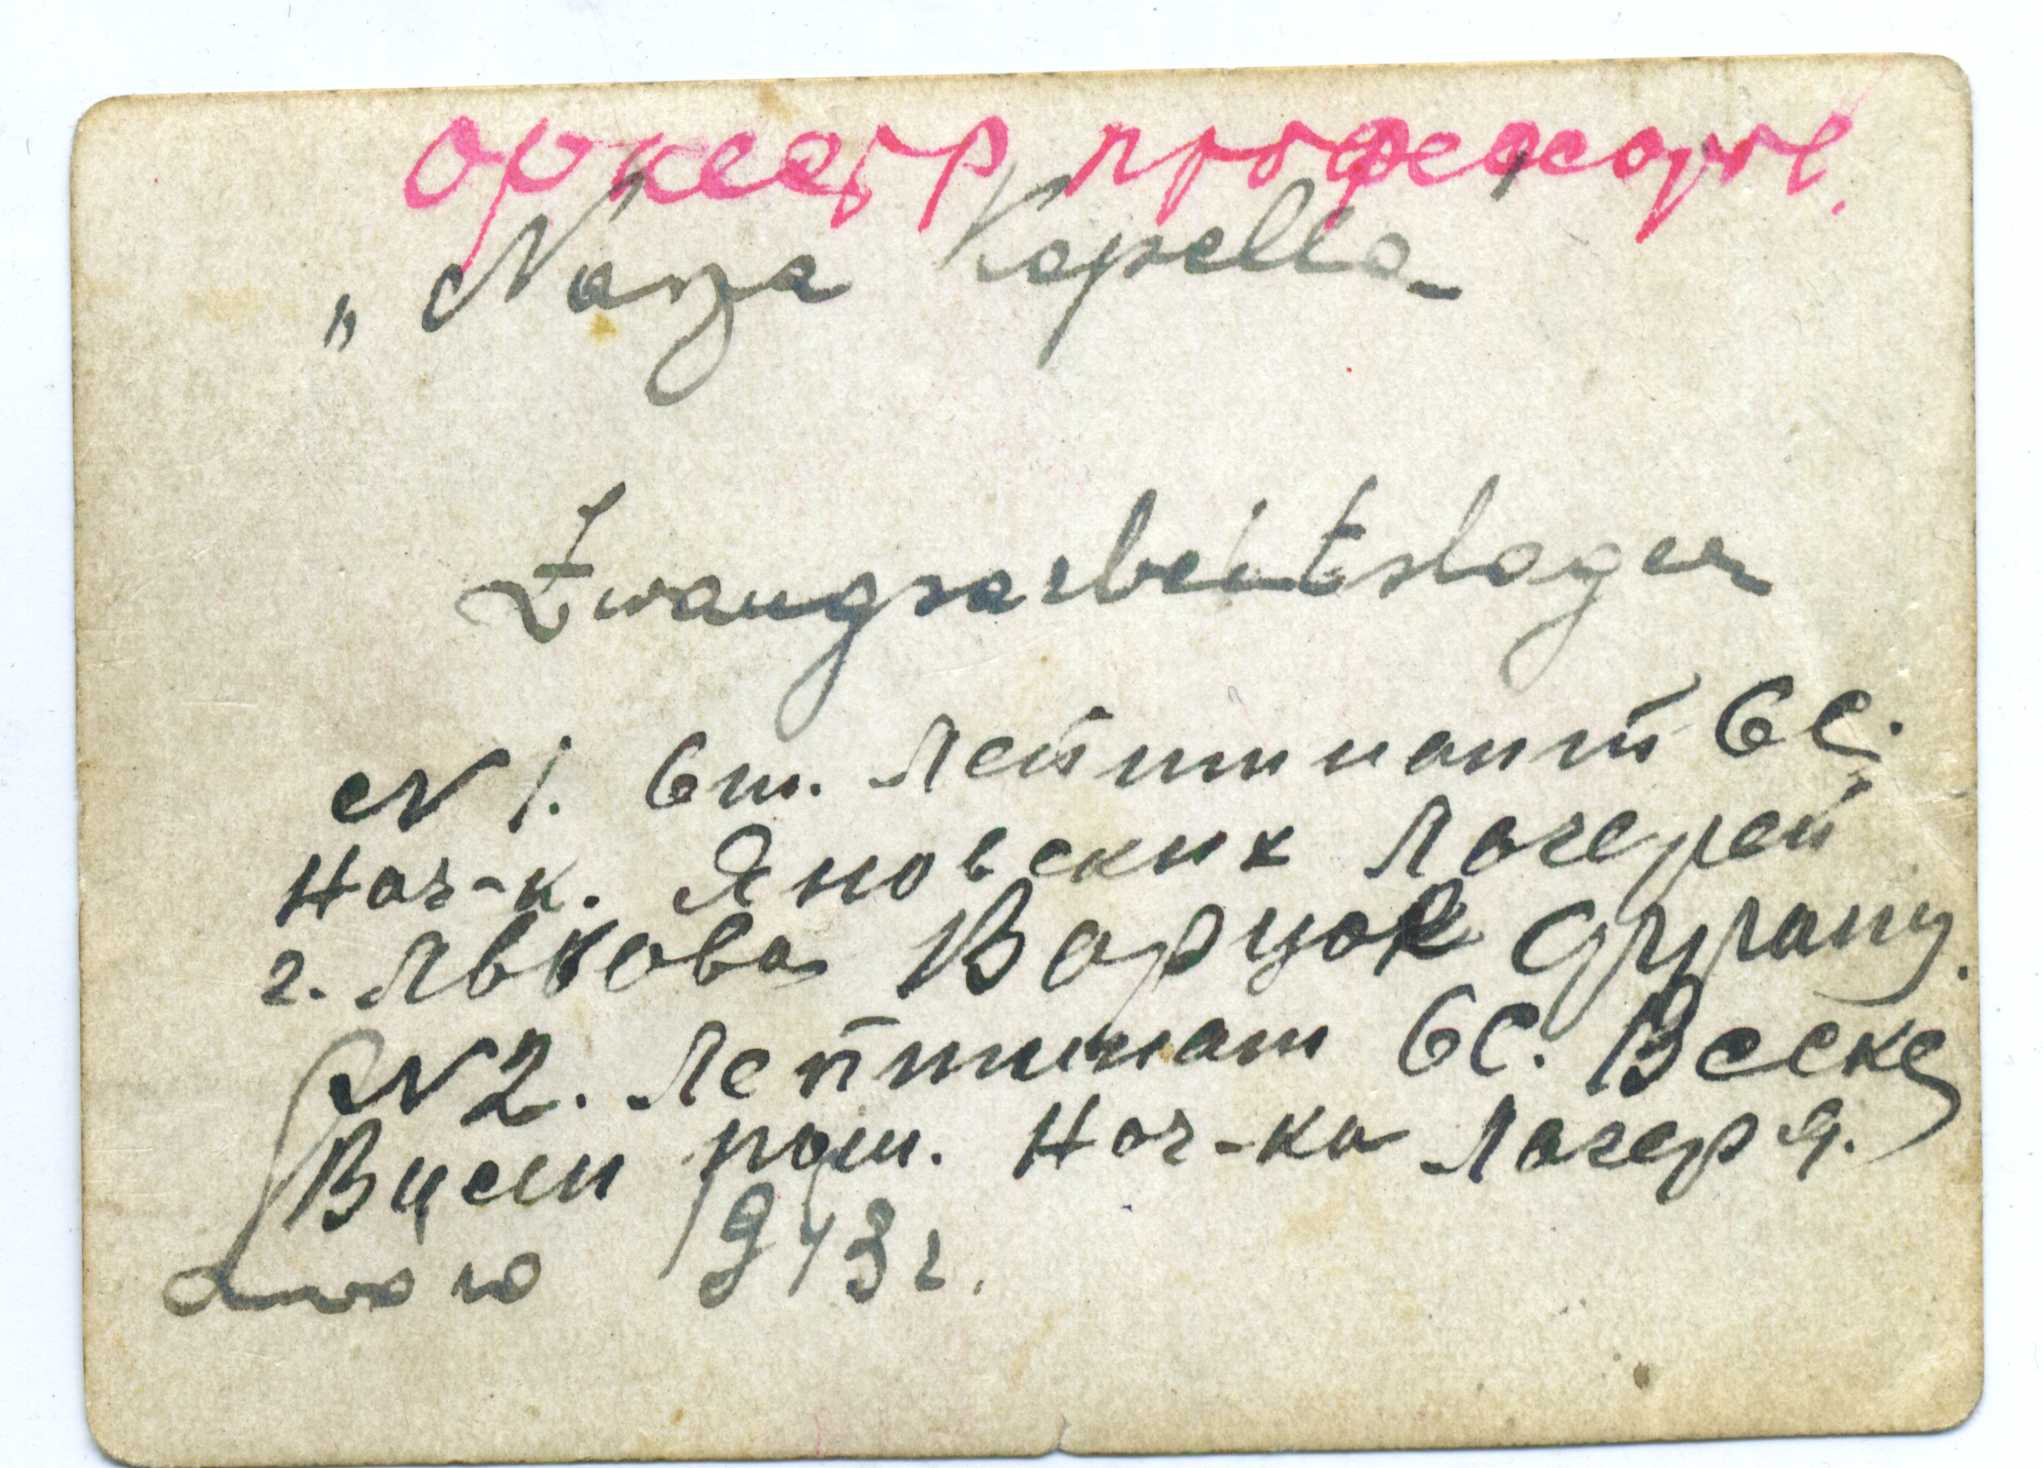 оркестр профессоров.
„Naza Kapella
Zwangsarbeitslager
N 1. Ст. Лейтинант СС.
Нач-к. Яновских Лагерей
г. Львова Варцок
N 2. Лейтинат СС. Веске
Нач-ка Лагеря.
1943 г.